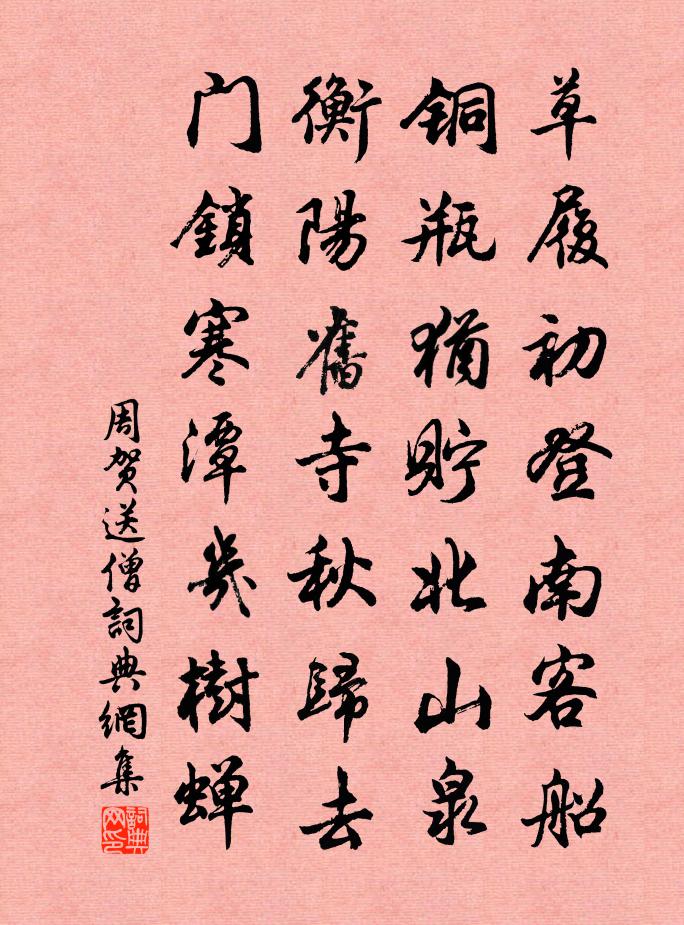 草履初登南客船
銅瓶猶貯北山泉
衡陽舊寺秋歸去
门鎖寒潭幾樹蝉
周贺送僧詞典網集
詞典网印